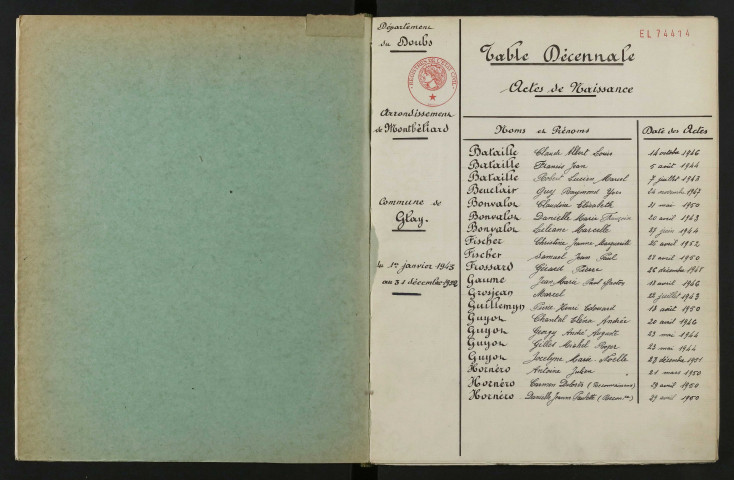 Département
du Doubs
Arrondissement
de Montbéliard
Commune de
Glay.
du 1er janvier 1943
au 31 décembre 1952
EL 74414
Table Décennale
Actes de Naissance
Noms et Prénoms Date des Actes
Bataille Claude Albert Louis 14 octobre 1946
Bataille Francis Jean 5 août 1944
Bataille Robert Lucien Marcel 7 juillet 1943
Beuclair Guy Raymond Yves 21 novembre 1947
Bonvalot Claudine Elisabeth 21 mai 1950
Bonvalot Danielle Marie Françoise 20 avril 1943
Bonvalot Liliane Marcelle 27 juin 1944
Fischer Christine Jeanne Marguerite 26 avril 1952
Fischer Samuel Jean Paul 22 avril 1950
Frossard Gérard Pierre 26 décembre 1945
Gaume Jean Marie Paul 18 avril 1946
Grosjean Marcel 22 juillet 1943
Guillemyn Pierre Henri Edouard 18 août 1950
Guyon Chantal Andrée 20 avril 1946
Guyon Georgy André Auguste 23 mai 1944
Guyon Gilles Michel Roger 23 mai 1944
Guyon Jocelyne Marie-Noëlle 27 décembre 1951
Hornéro Antoine Julien 21 mars 1950
Hornéro Carmen Dolorès (Reconnaissance) 29 avril 1950
Hornéro Danielle Jeanne Paulette (Reconn.ce) 29 avril 1950